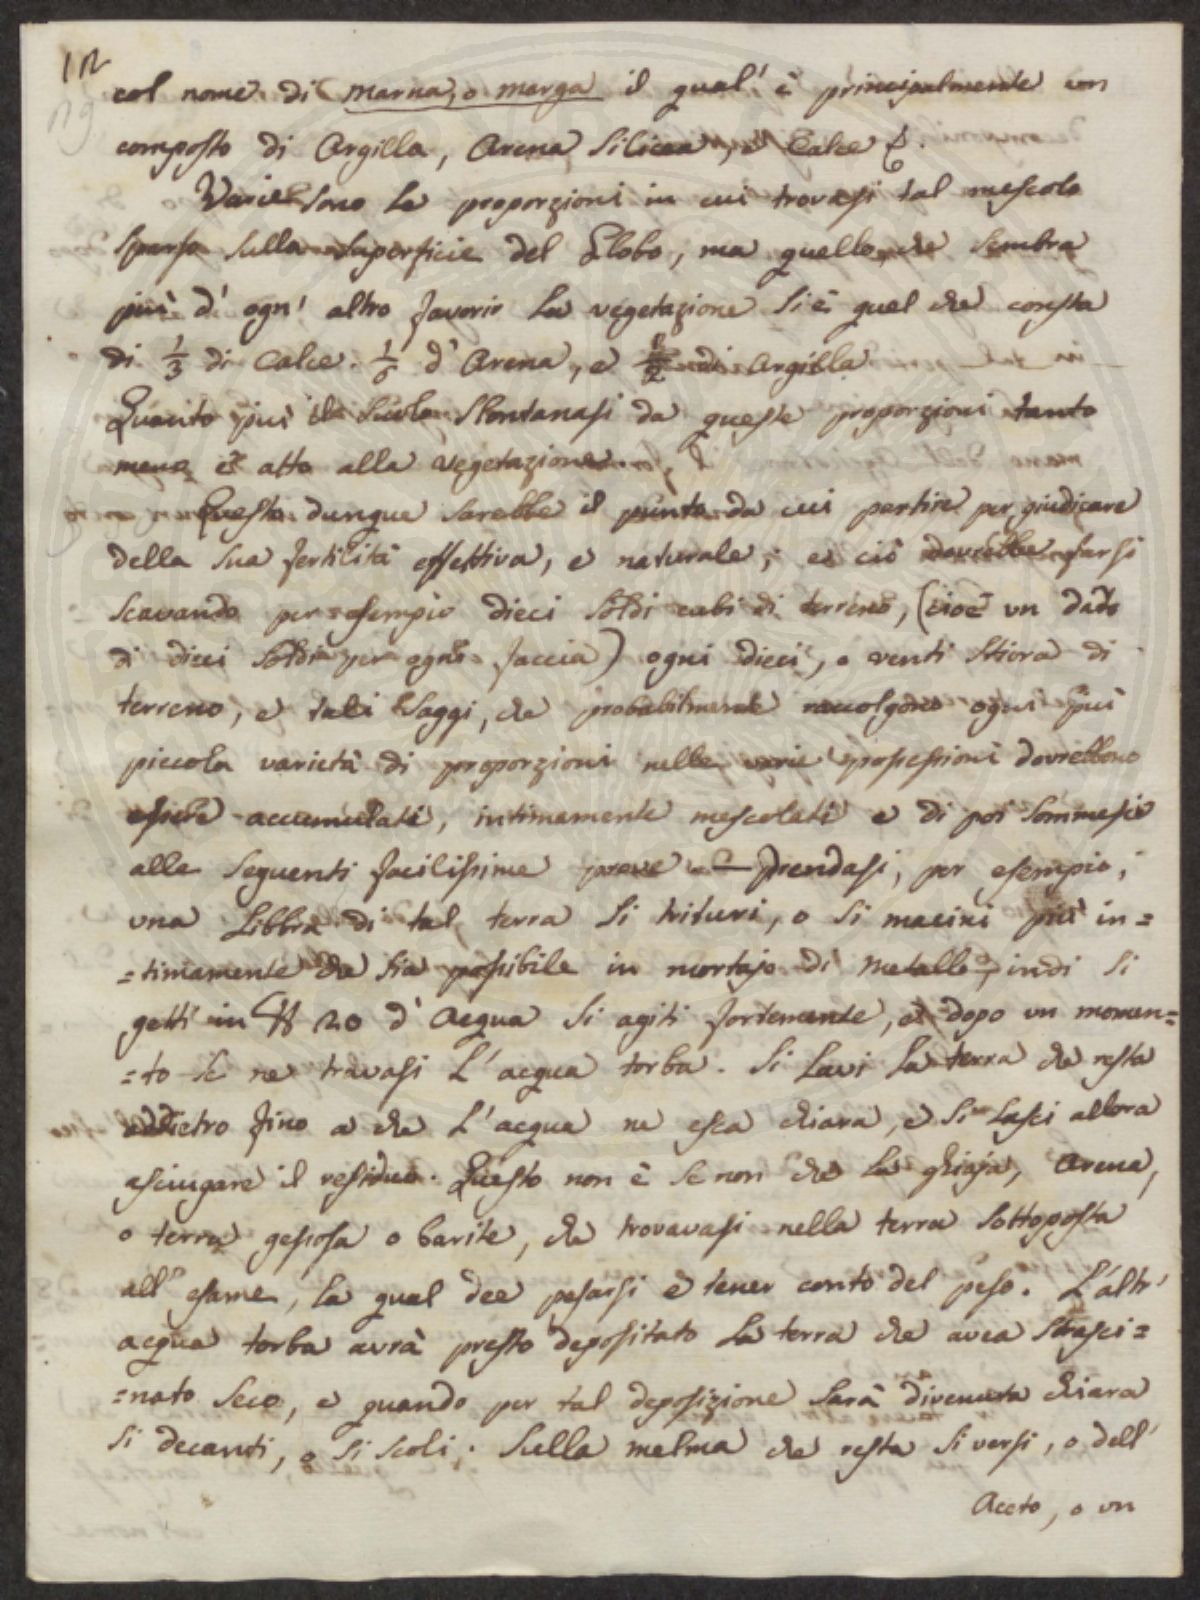 12
119
col nome di marna, o marga il qual' è principalmente un
composto di Argilla, Arena Silicea, e Calce &.
Varie sono le proporzioni in cui trovasi tal mescolo
sparso sulla superficie del Globo, ma quello, che sembra
più d' ogn' altro favorir la vegetazione si è quel che consta
di 1/3 di Calce. 1/6 d' Arena, e 1/2 di Argilla
Quanto più il suolo slontanasi da queste proporzioni tanto
meno è atto alla vegetazione.
Questo dunque sarebbe il punto da cui partire per giudicare
della sua fertilità effettiva, e naturale; e ciò dovrebbe farsi
scavando per esempio dieci soldi cubi di terreno, (cioè un dado
di dieci soldi per ogni faccia) ogni dieci, o venti stiora di
terreno, e tali saggi, che probabilmente raccolgono ogni più
piccola varietà di proporzioni nelle varie possessioni dovrebbono
essere accumulati, intimamente mescolati e di poi sommessi
alle seguenti facilissime prove — prendasi, per esempio,
una Libbra di tal terra si trituri, o si macini più in=
=timamente che sia possibile in mortajo di metallo, indi si
getti in ℔ 20 d' Acqua si agiti fortemente, e dopo un momen=
=to se ne travasi l' acqua torba. Si lavi la terra che resta
addietro fino a che l' acqua ne esca chiara, e si lasci allora
asciugare il residuo. Questo non è se non che la ghiaja, arena,
o terra gessosa o barite, che trovavasi nella terra sottoposta
all' esame, la qual dee pesarsi e tener conto del peso. L'altr'
acqua torba avrà presto depositato la terra che avea strasci=
=nato seco, e quando per tal deposizione sarà divenuta chiara
si decanti, o si scoli; Sulla melma che resta si versi, o dell'
Aceto, o un